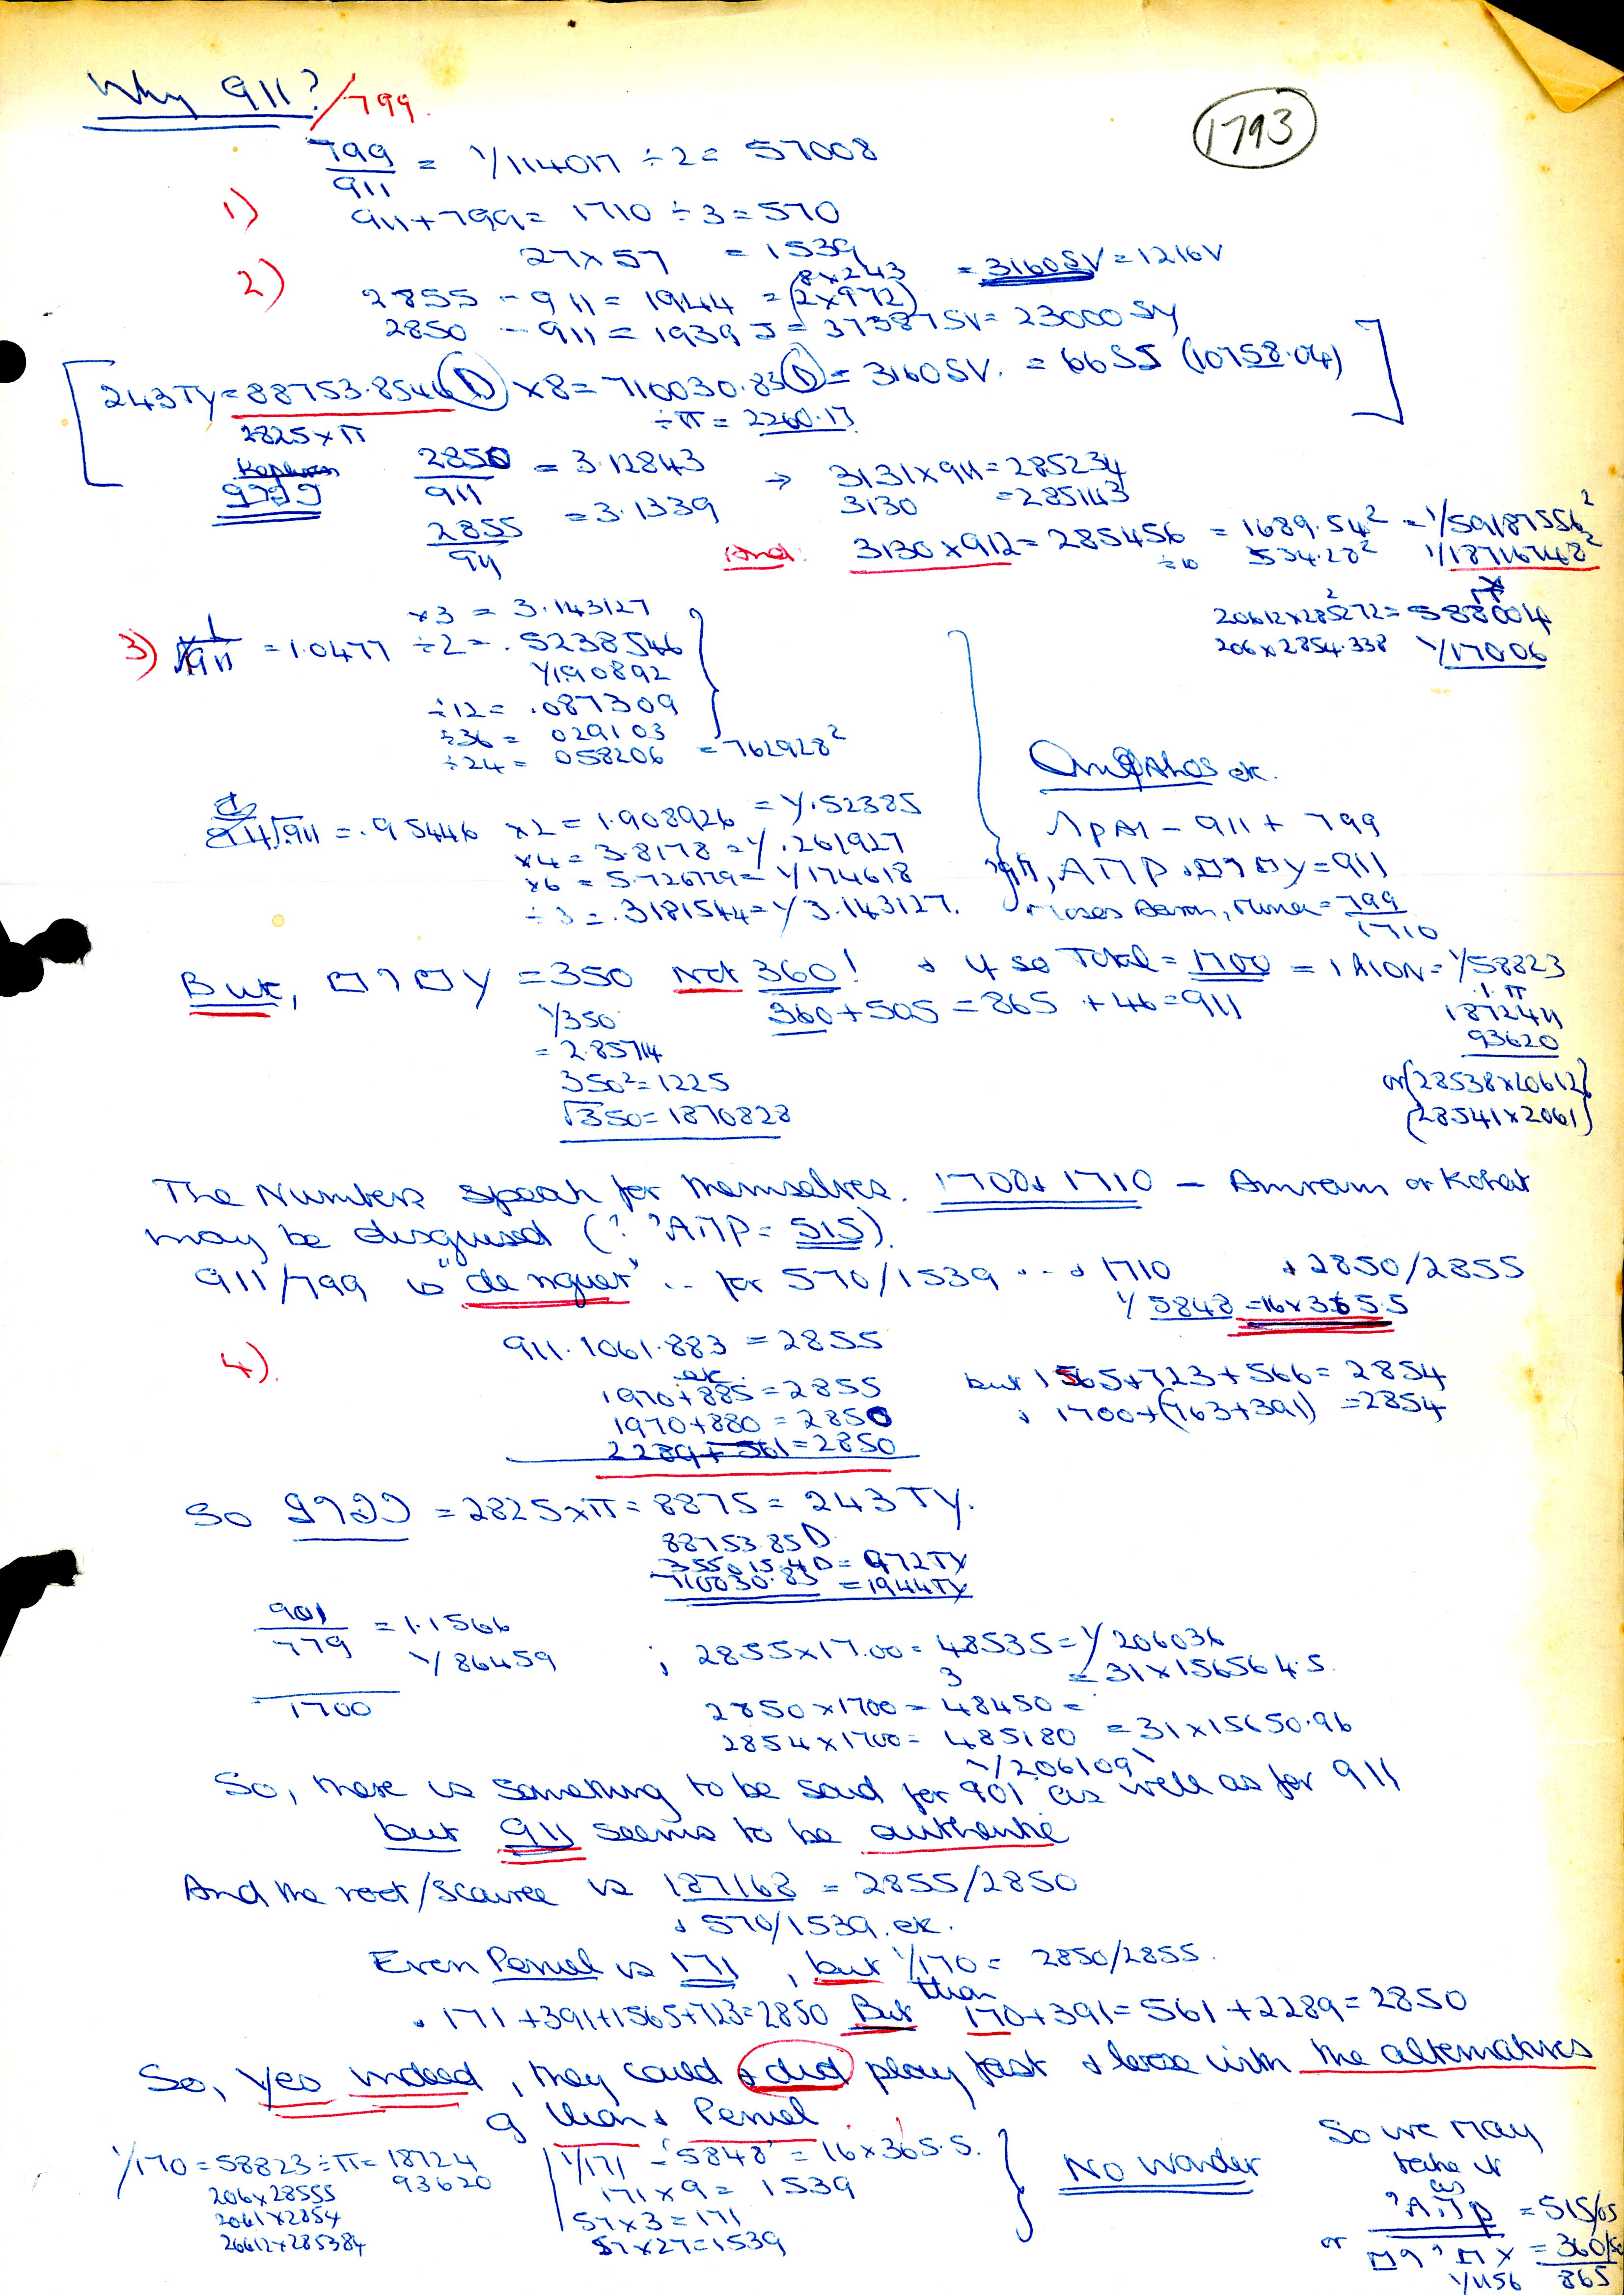 Why 911? /799
1793
799/911 = 1/114017 ÷ 2 = 57008
1) 911 + 799 = 1710 ÷ 3 = 570
27 x 57 = 1539
2) 2855 - 911 = 1944 = (8 x 243 2 x 972) = 3160 SV = 1216V
2850 - 911 = 1939 J = 37387 SV = 23000 SY
[243TY = 88753.8546 (D) x 8 = 710030.83 (D) = 3160 SV. = 66 SS (10758.04)]
2825 x π
÷ π = 2260.17
2850/911 = 3.12843 → 3131 x 911 = 285234
3130 = 285143
2855/911 = 3.1339
And: 3130 x 912 = 285456 = 1689.54² = 1/59187556²
÷10 534.28² 1/18716748²
20612 x 285272 = 588004
206 x 2854.338 1/17006
3) 1/√911 = 1.0477
x3 = 3.143127
÷2 = .5238546
1/190892
÷12 = .087309
÷36 = 029103
÷24 = 058206 = 762928²
√911 = .95446 x2 = 1.908926 = 1/.52385
x4 = 3.8178 = 1/.261927
x6 = 5.726779 = 1/174618
÷3 = .3181544 = 1/3.143127.
Omphalos etc.
- 911 + 799
= 911
Moses Aaron, = 799
1710
But, = 350 Not 360! & if so Total = 1700 = 1 AION = 1/58823
360 + 505 = 865 + 46 = 911
1/350
= 2.85714
350² = 1225
√350 = 1870828
1.π
1872411
93620
or (28538 x 20612)
(28541 x 2061)
The Numbers speak for themselves. 1700 & 1710 - Amram or Kohat
may be disguised (? = 515).
911/799 is "de riguer" .. for 570/1539 ... & 1710 & 2850/2855
1/5848 = 16 x 365.5
4). 911. 1061. 883 = 2855
etc.
1970 + 885 = 2855
1970 + 880 = 2850
2289 + 561 = 2850
but 1565 + 723 + 566 = 2854
& 1700 + (763 + 391) = 2854
So = 2825 x π = 8875 = 243 TY.
88753.85D
355015.4D = 972TY
710030.83 = 1944TY
901/779 = 1.1566
1/86459
1700
; 2855 x 17.00 = 48535 = 1/206036
3 = 31 x 156564.5
2850 x 1700 = 48450 =
2854 x 1700 = 485180 = 31 x 15650.96
1/206109
So, there is something to be said for 901 as well as for 911
but 911 seems to be authentic
And the root/source is 187168 = 2855/2850
& 570/1539. etc.
Even Penuel is 171, but 1/170 = 2850/2855.
. 171 + 391 + 1565 + 723 = 2850 But then 170 + 391 = 561 + 2289 = 2850
So, yes indeed, they could & did play fast & loose with the alternatives
of & Penuel.
1/170 = 58823 ÷ π = 18724
93620
206 x 28555
2061 x 2854
26612 x 285384
1/171 - '5848' = 16 x 365.5.
171 x 9 = 1539
57 x 3 = 171
57 x 27 = 1539
No wonder
So we may
take it
as
= 515/05
or = 360/50
1/1156 865